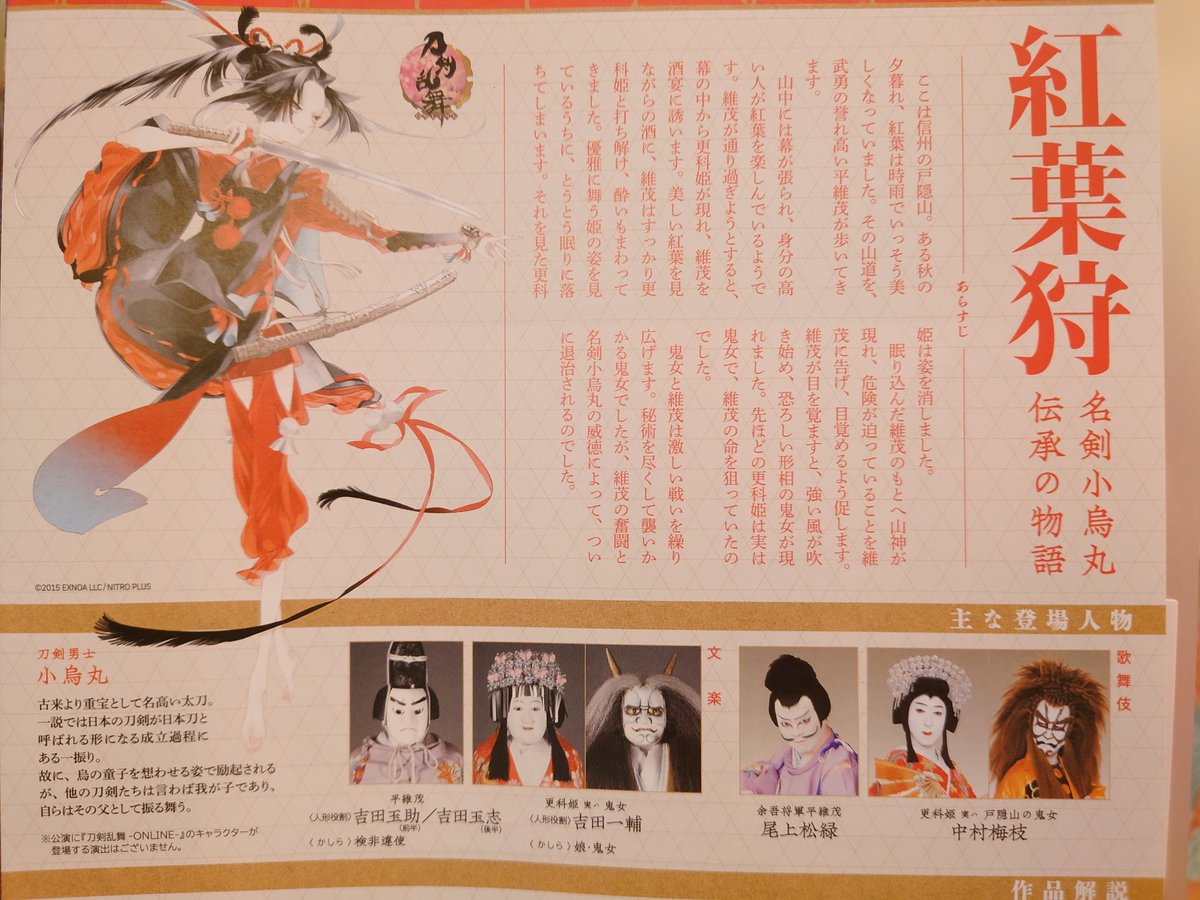 紅葉狩
名剣小烏丸
伝承の物語
あらすじ
ここは信州の戸隠山。ある秋の
夕暮れ、紅葉は時雨でいっそう美
しくなっていました。その山道を、
武勇の誉れ高い平維茂が歩いてき
ます。
山中には幕が張られ、身分の高
い人が紅葉を楽しんでいるようで
す。維茂が通り過ぎようとすると、
幕の中から更科姫が現れ、維茂を
酒宴に誘います。美しい紅葉を見
ながらの酒に、維茂はすっかり更
科姫と打ち解け、酔いもまわって
きました。優雅に舞う姫の姿を見
ているうちに、とうとう眠りに落
ちてしまいます。それを見た更科
姫は姿を消しました。
眠り込んだ維茂のもとへ山神が
現れ、危険が迫っていることを維
茂に告げ、目覚めるよう促します。
維茂が目を覚ますと、強い風が吹
き始め、恐ろしい形相の鬼女が現
れました。先ほどの更科姫は実は
鬼女で、維茂の命を狙っていたの
でした。
鬼女と維茂は激しい戦いを繰り
広げます。秘術を尽くして襲いか
かる鬼女でしたが、維茂の奮闘と
名剣小烏丸の威徳によって、つい
に退治されるのでした。
刀剣乱舞
©2015 EXNOA LLC/NITRO PLUS
主な登場人物
歌舞伎
更科姫 実ハ 戸隠山の鬼女
中村梅枝
余吾将軍平維茂
尾上松緑
文楽
更科姫 実ハ 鬼女
〈人形役割〉吉田一輔
〈かしら〉娘・鬼女
平維茂
〈人形役割〉吉田玉助(前半)/吉田玉志(後半)
〈かしら〉検非違使
刀剣男士
小烏丸
古来より重宝として名高い太刀。
一説では日本の刀剣が日本刀と
呼ばれる形になる成立過程に
ある一振り。
故に、鳥の童子を想わせる姿で励起される
が、他の刀剣たちは言わば我が子であり、
自らはその父として振る舞う。
※公演に『刀剣乱舞-ONLINE-』のキャラクターが
登場する演出はございません。
作品解説